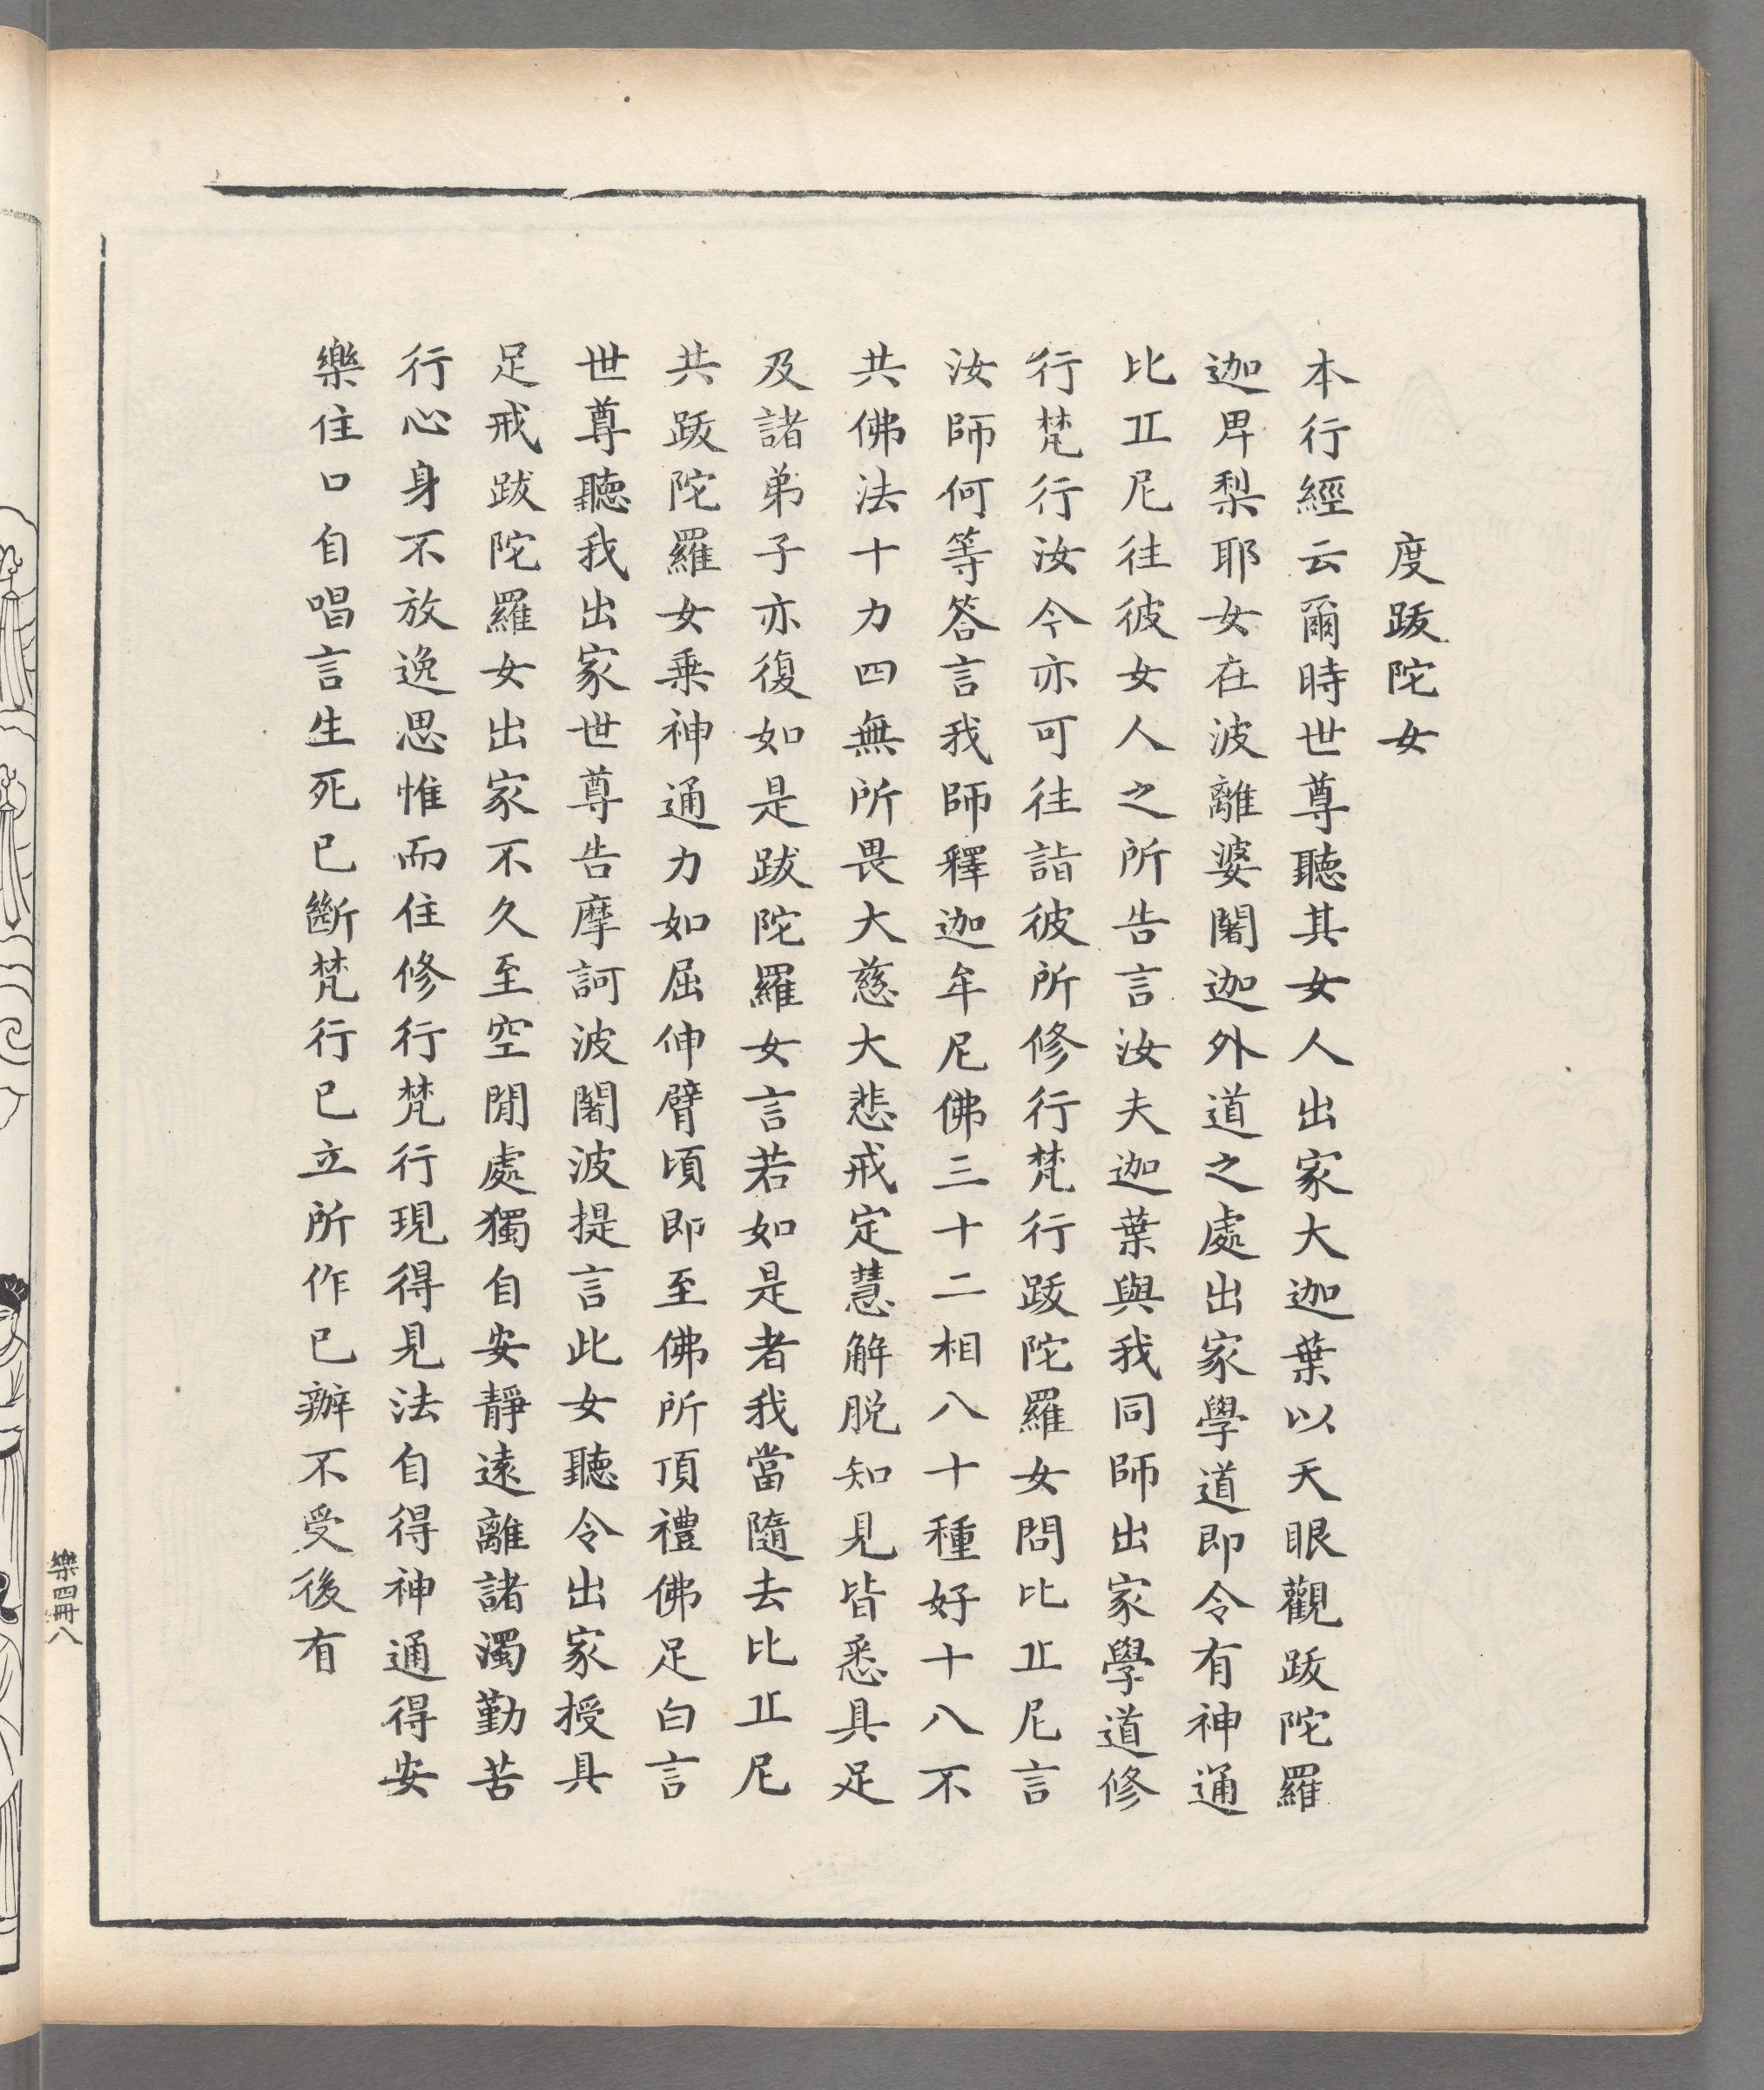 度跋陀女
本行經云爾時世尊聽其女人出家大迦葉以天眼觀跋陀羅
迦毘梨耶女在波離婆闍迦外道之處出家學道即令有神通
比丘尼往彼女人之所告言汝夫迦葉與我同師出家學道修
行梵行汝今亦可往詣彼所修行梵行跋陀羅女問比丘尼言
汝師何等答言我師釋迦牟尼佛三十二相八十種好十八不
共佛法十力四無所畏大慈大悲戒定慧解脫知見皆悉具足
及諸弟子亦復如是跋陀羅女言若如是者我當隨去比丘尼
共跋陀羅女乗神通力如屈伸臂頃即至佛所頂禮佛足白言
世尊聽我出家世尊告摩訶波闍波提言此女聽令出家授具
足戒跋陀羅女出家不久至空閒處獨自安靜遠離諸濁勤苦
行心身不放逸思惟而住修行梵行現得見法自得神通得安
樂住口自唱言生死已斷梵行已立所作已辦不受後有
樂四冊八